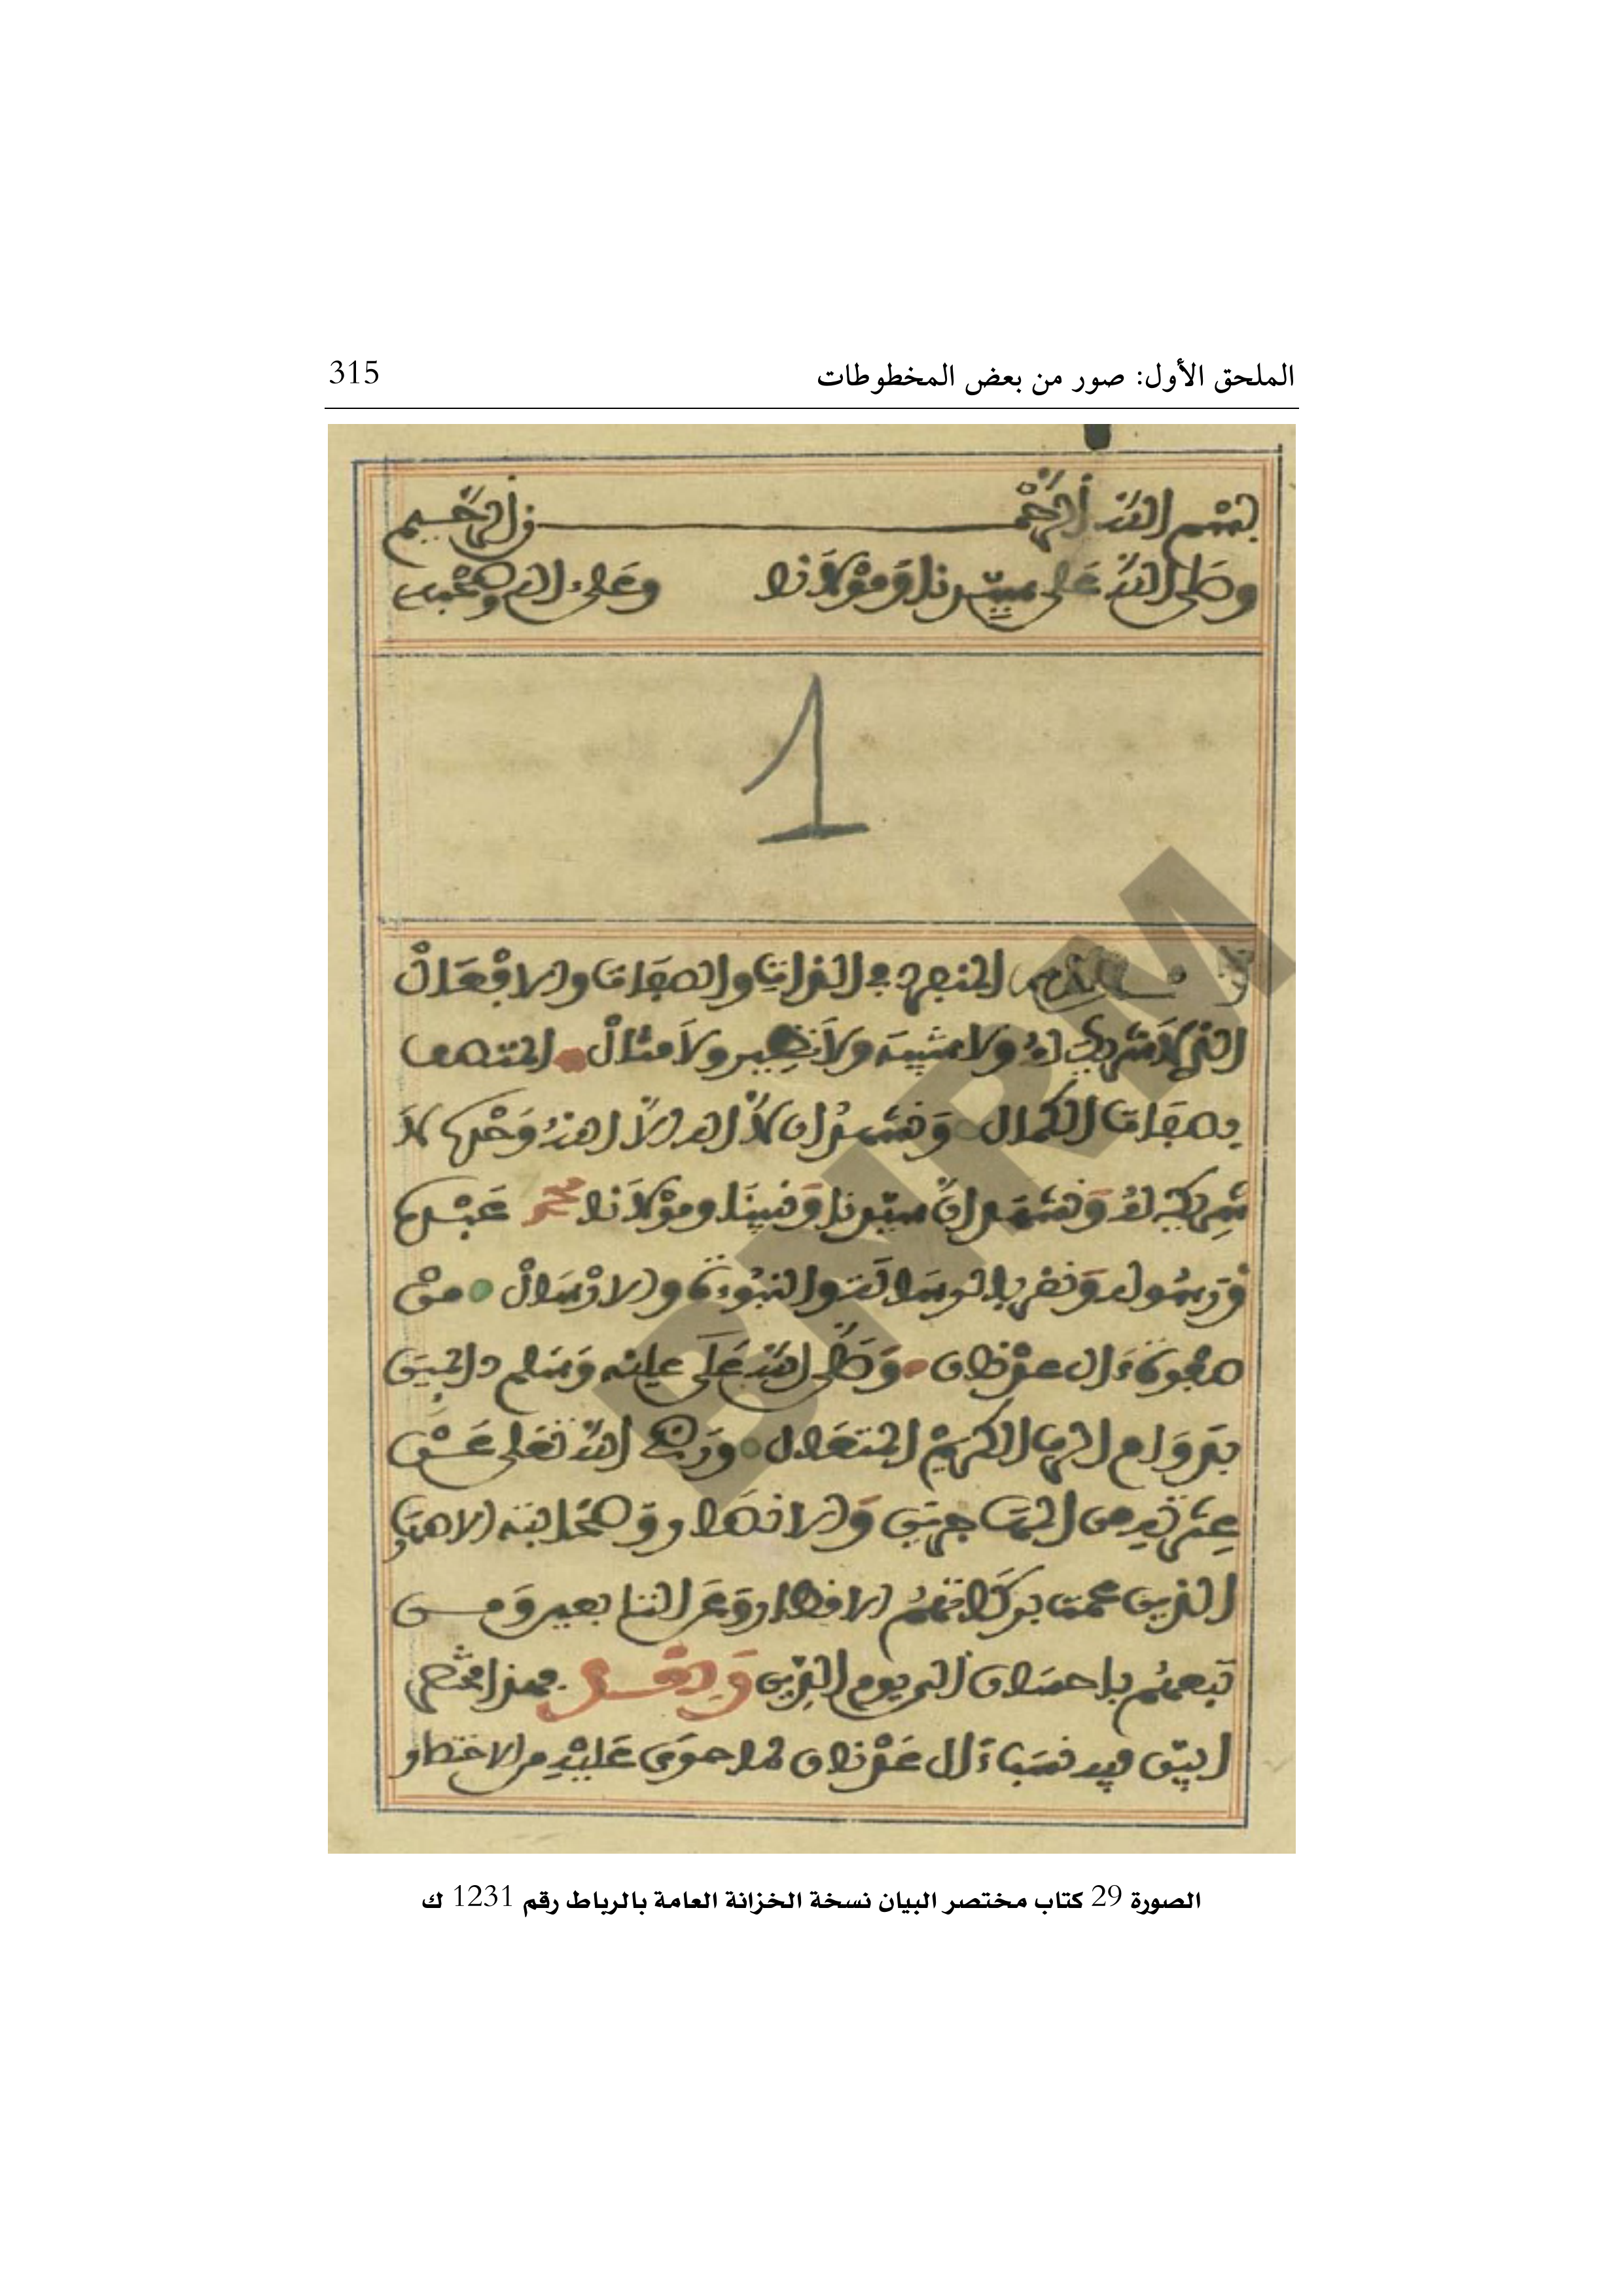 الملحق الأول: صور من بعض المخطوطات 315
بسم الله الرحمن الرحيم
وصلى الله على سيدنا ومولانا وعلى اله وصحبه
1
المنفرد في الذات والصفات والافعال
الذي لا شريك له ولا شبيه ولا نظير ولا مثال المتصف
بصفات الكمال ونشهد ان لا اله الا الله وحده لا
شريك له ونشهد ان سيدنا ونبينا ومولانا محمد عبده
ورسوله ونقر بالرسالة والنبوءة والارسال من
صفوة ءال عدنان وصلى الله على عليه وسلم
بدوام الرب الكريم المتعال ورضي الله تعلى عن
عشرته من المهاجرين والانصار وصحابته
الذين عمت بركاتهم الاقطار وعن التابعين ومن
تبعهم باحسان الى يوم الدين وبعد فهذا مختصر
ابين فيه نسب ءال عدنان لما حوى عليه من الاختصار
BNRM
الصورة 29 كتاب مختصر البيان نسخة الخزانة العامة بالرباط رقم 1231 ك